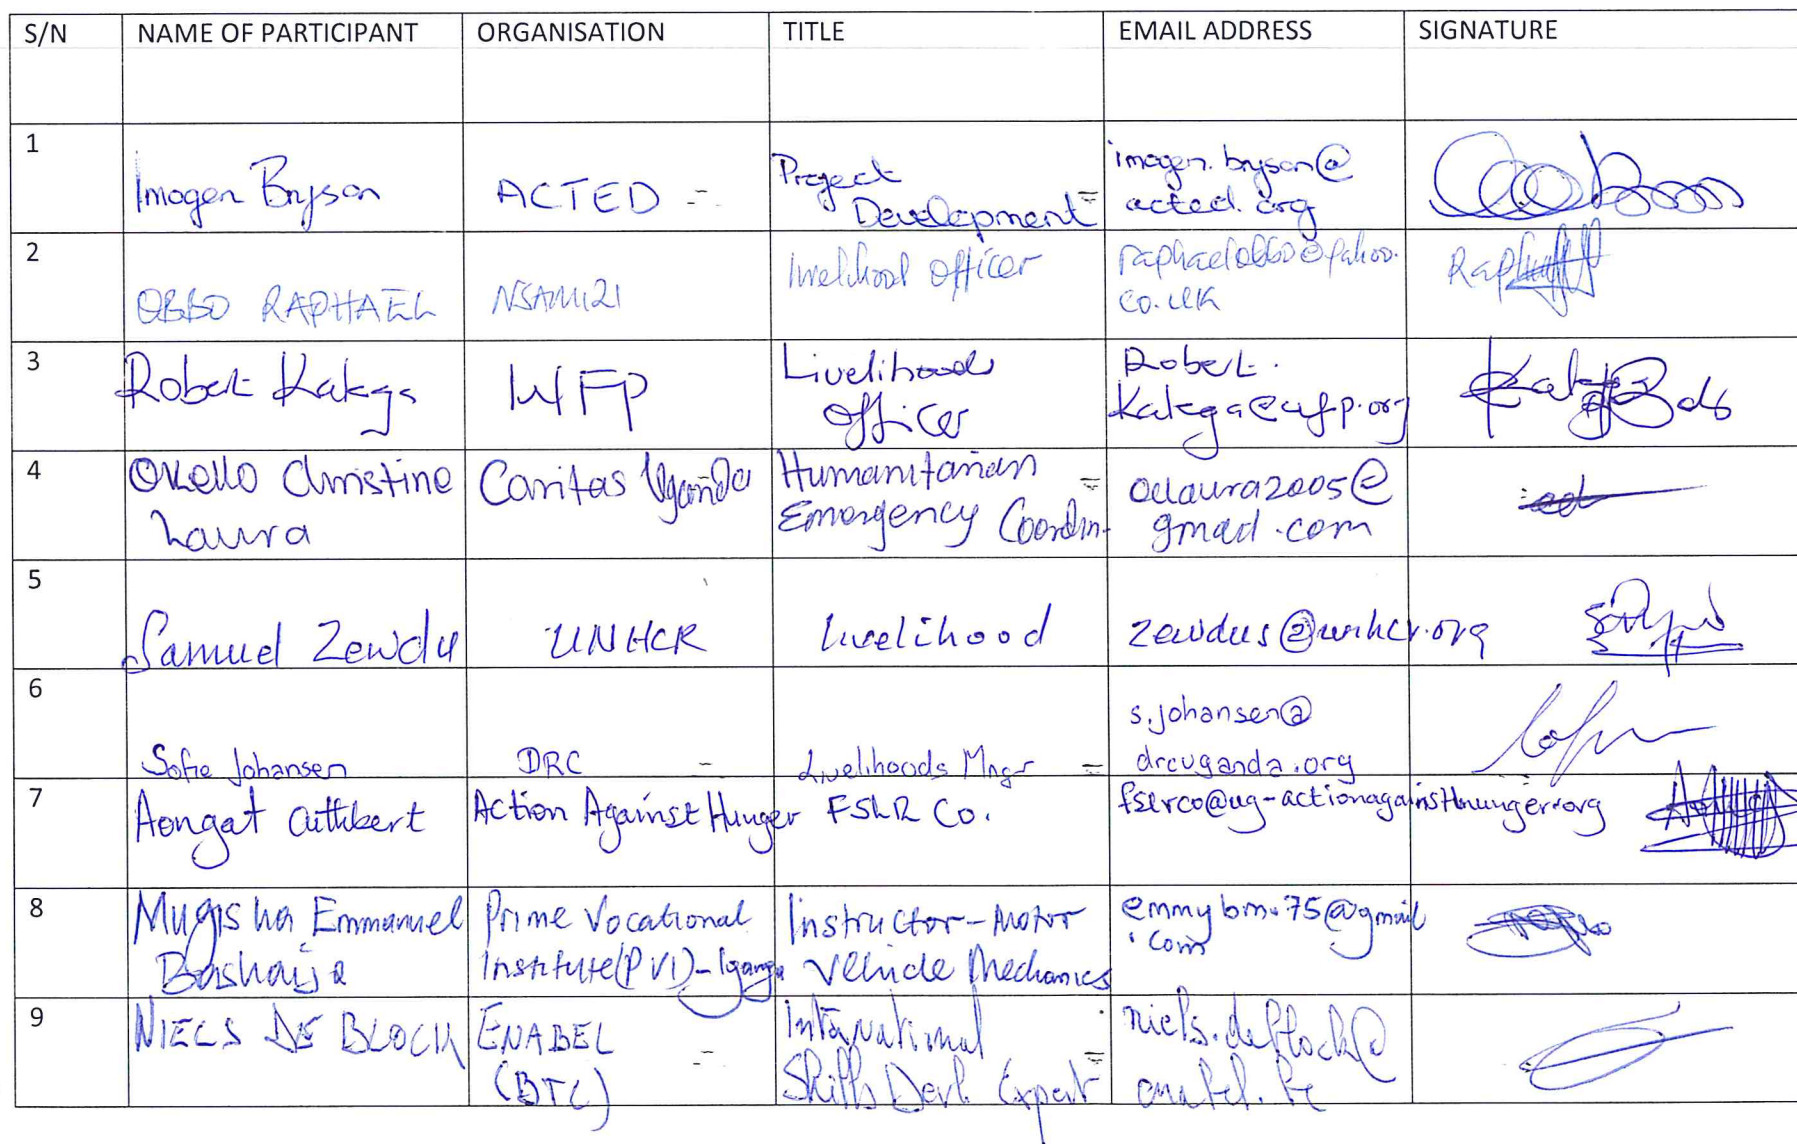 S/N NAME OF PARTICIPANT ORGANISATION TITLE EMAIL ADDRESS SIGNATURE
1 Imogen Bryson ACTED Project Development imogen.bryson@
acted.org
2 OBBO RAPHAEL NSAMIZI livelihood officer raphaelobbo@yahoo.
co.uk
3 Robert Kakega WFP Livelihoods Officer Robert.
Kakega@wfp.org
4 Okello Christine Laura Caritas Uganda Humanitarian Emergency Coordin. oclaura2005@
gmail.com
5 Samuel Zewdu UNHCR livelihood zewdus@unhcr.org
6 Sofie Johansen DRC Livelihoods Mngr s.johansen@
drcuganda.org
7 Aongat Cuthbert Action Against Hunger FSLR Co. fslrco@ug-actionagainsthunger.org
8 Mugisha Emmanuel Bashaija Prime Vocational Institute (PVI) - Iganga Instructor - Motor Vehicle Mechanics emmybm.75@gmail
.com
9 NIELS DE BLOCK ENABEL (BTC) International Skills Devl. Expert niels.deblock@
enabel.be